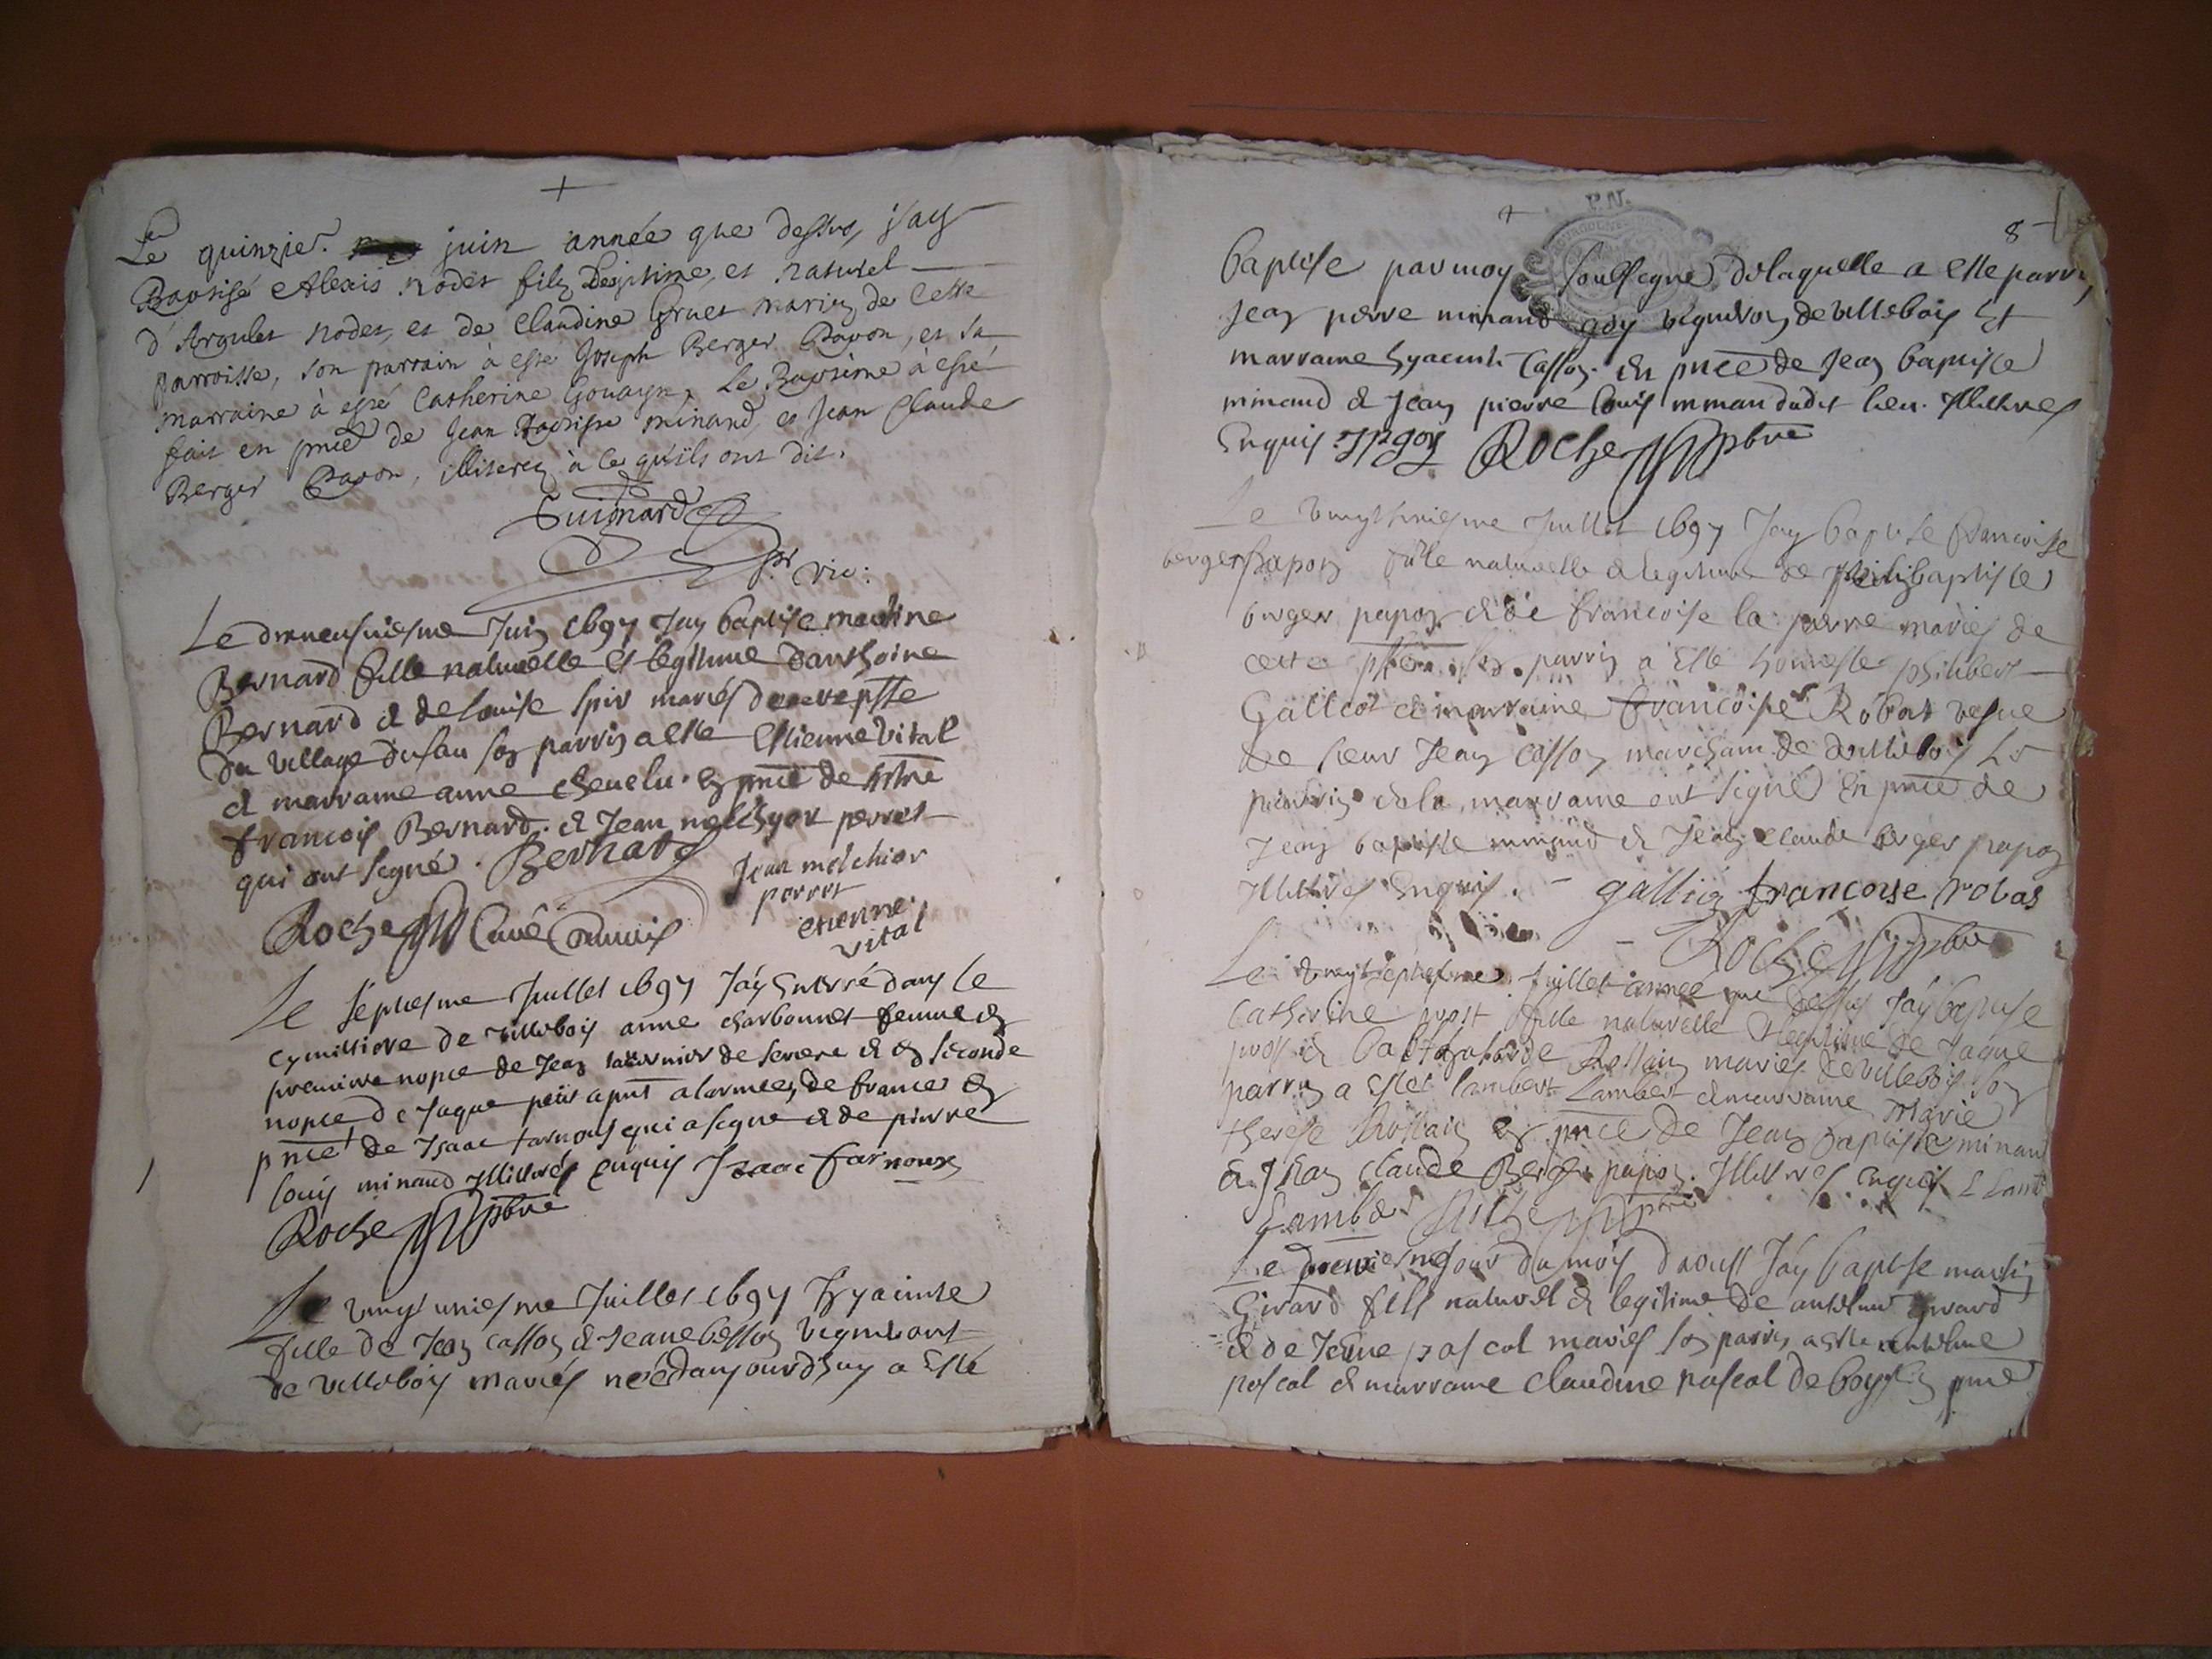 Le quinzie. juin année que dessus, j'ay
Baptisé Alexis Nodet filz Legitime, et naturel
d'Argulet Nodet, et de Claudine Gruet mariez de Cette
parroisse, son parrain à esté Joseph Berger Papon, et sa
marraine à esté Catherine Gouayn, Le Baptême à esté
fait en pnce de Jean Baptiste minand, et Jean Claude
Berger Papon, illiterez à ce qu'ils ont dit.
Guinard
vic:
Le dixneufviesme Juin 1697 Jay baptise
Bernard fille naturelle et legitime danthoine
Bernard et de louise spir mariés
du village dufau son parrin a esté Estienne Vital
et marraine anne chevelu. en pnce de
francois Bernard. et Jean melchyor perret
qui ont signé. Bernard
Jean melchior
perret
etienne
vital
Roche Curé Commis
Le septiesme Juillet 1697 Jáy enterré dans le
cymittiere de villebois anne charbonnet femme en
premiere nopce de Jean de et en seconde
nopce de Jaque petit a larmee de france en
pnce de Isaac farnoux qui a signe et de pierre
louis minand Illitérés enquis Isaac farnoux
Roche pbre
Le vingt uniesme Juillet 1697 Hyacinte
fille de Jean Casson et Jeane besson vignerons
de villebois mariés née daujourdhuy a Esté
8
P.N.
baptise par moy soussigne delaquelle a este parrin
Jean pierre minand goy vigneron de villebois Et
marraine hyacinte Casson. En pnce de Jean baptiste
minand et Jean pierre louis minan dudit lieu. Illitires
Enquis Roche pbre
Le Juillet 1697 Jay baptise francoise
berger papon fille naturelle et legitime de baptiste
berger papon et de francoise la mariés de
cette parrin a Esté honneste philibert
Galliot et marraine francoise Robat vefue
de sieur Jean Casson marchant de villebois Le
parrin et la marraine ont signé En pnce de
Jean baptiste minand et Jean claude berger papon
Illitires Enquis. - francoise robas
Roche pbre
Le vingtseptiesme Juillet année que dessus Jáy baptise
Catherine prost fille naturelle et legitime de Jaque
prost et de Rostain mariés de villebois son
parrin a Esté lambert Lambert et marraine Marie
therese Rostain en pnce de Jean baptiste minan
et Jean claude Berger papon. Illitires enquis
Roche pbre
Le premiesme Jour du mois daoust Jáy baptise
Girard fils naturel et legitime de anthelme girard
et de Jeane pascal mariés son parrin a esté anthelme
pascal et marraine claudine pascal de pnce